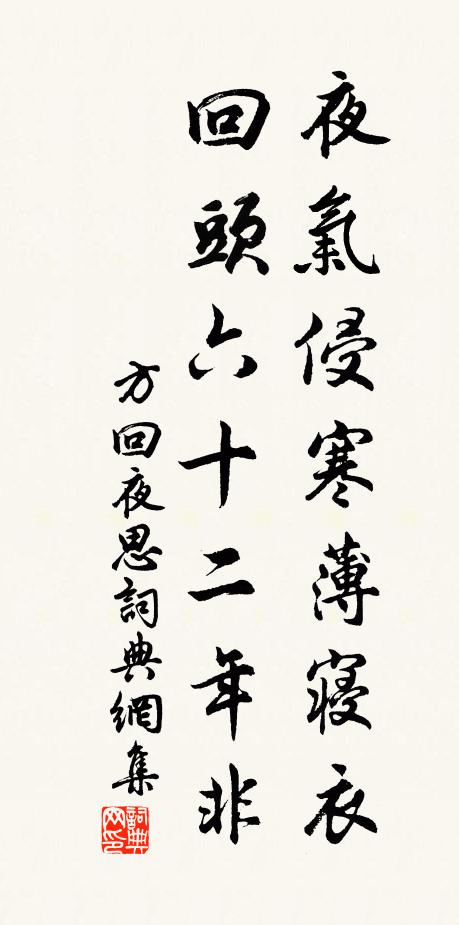 夜氣侵寒薄寢衣
回頭六十二年非
方回夜思詞典網集
詞典网印